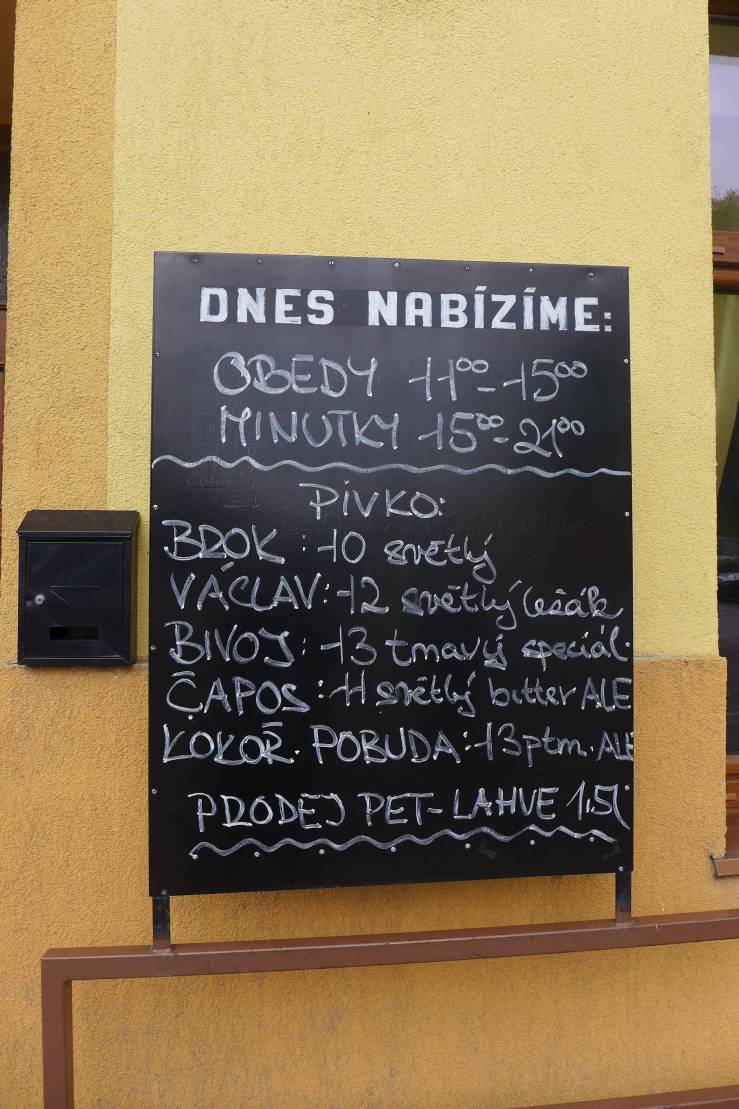 DNES NABÍZÍME:
OBĚDY 11⁰⁰-15⁰⁰
MINUTKY 15⁰⁰-21⁰⁰
PIVKO:
BROK: 10 světlý
VÁCLAV: 12 světlý ležák
BIVOJ: 13 tmavý speciál
ČAPOS: 11 světlý bitter ALE
KOKOŘ. POBUDA: 13 ptm. ALE
PRODEJ PET-LAHVE 1,5l